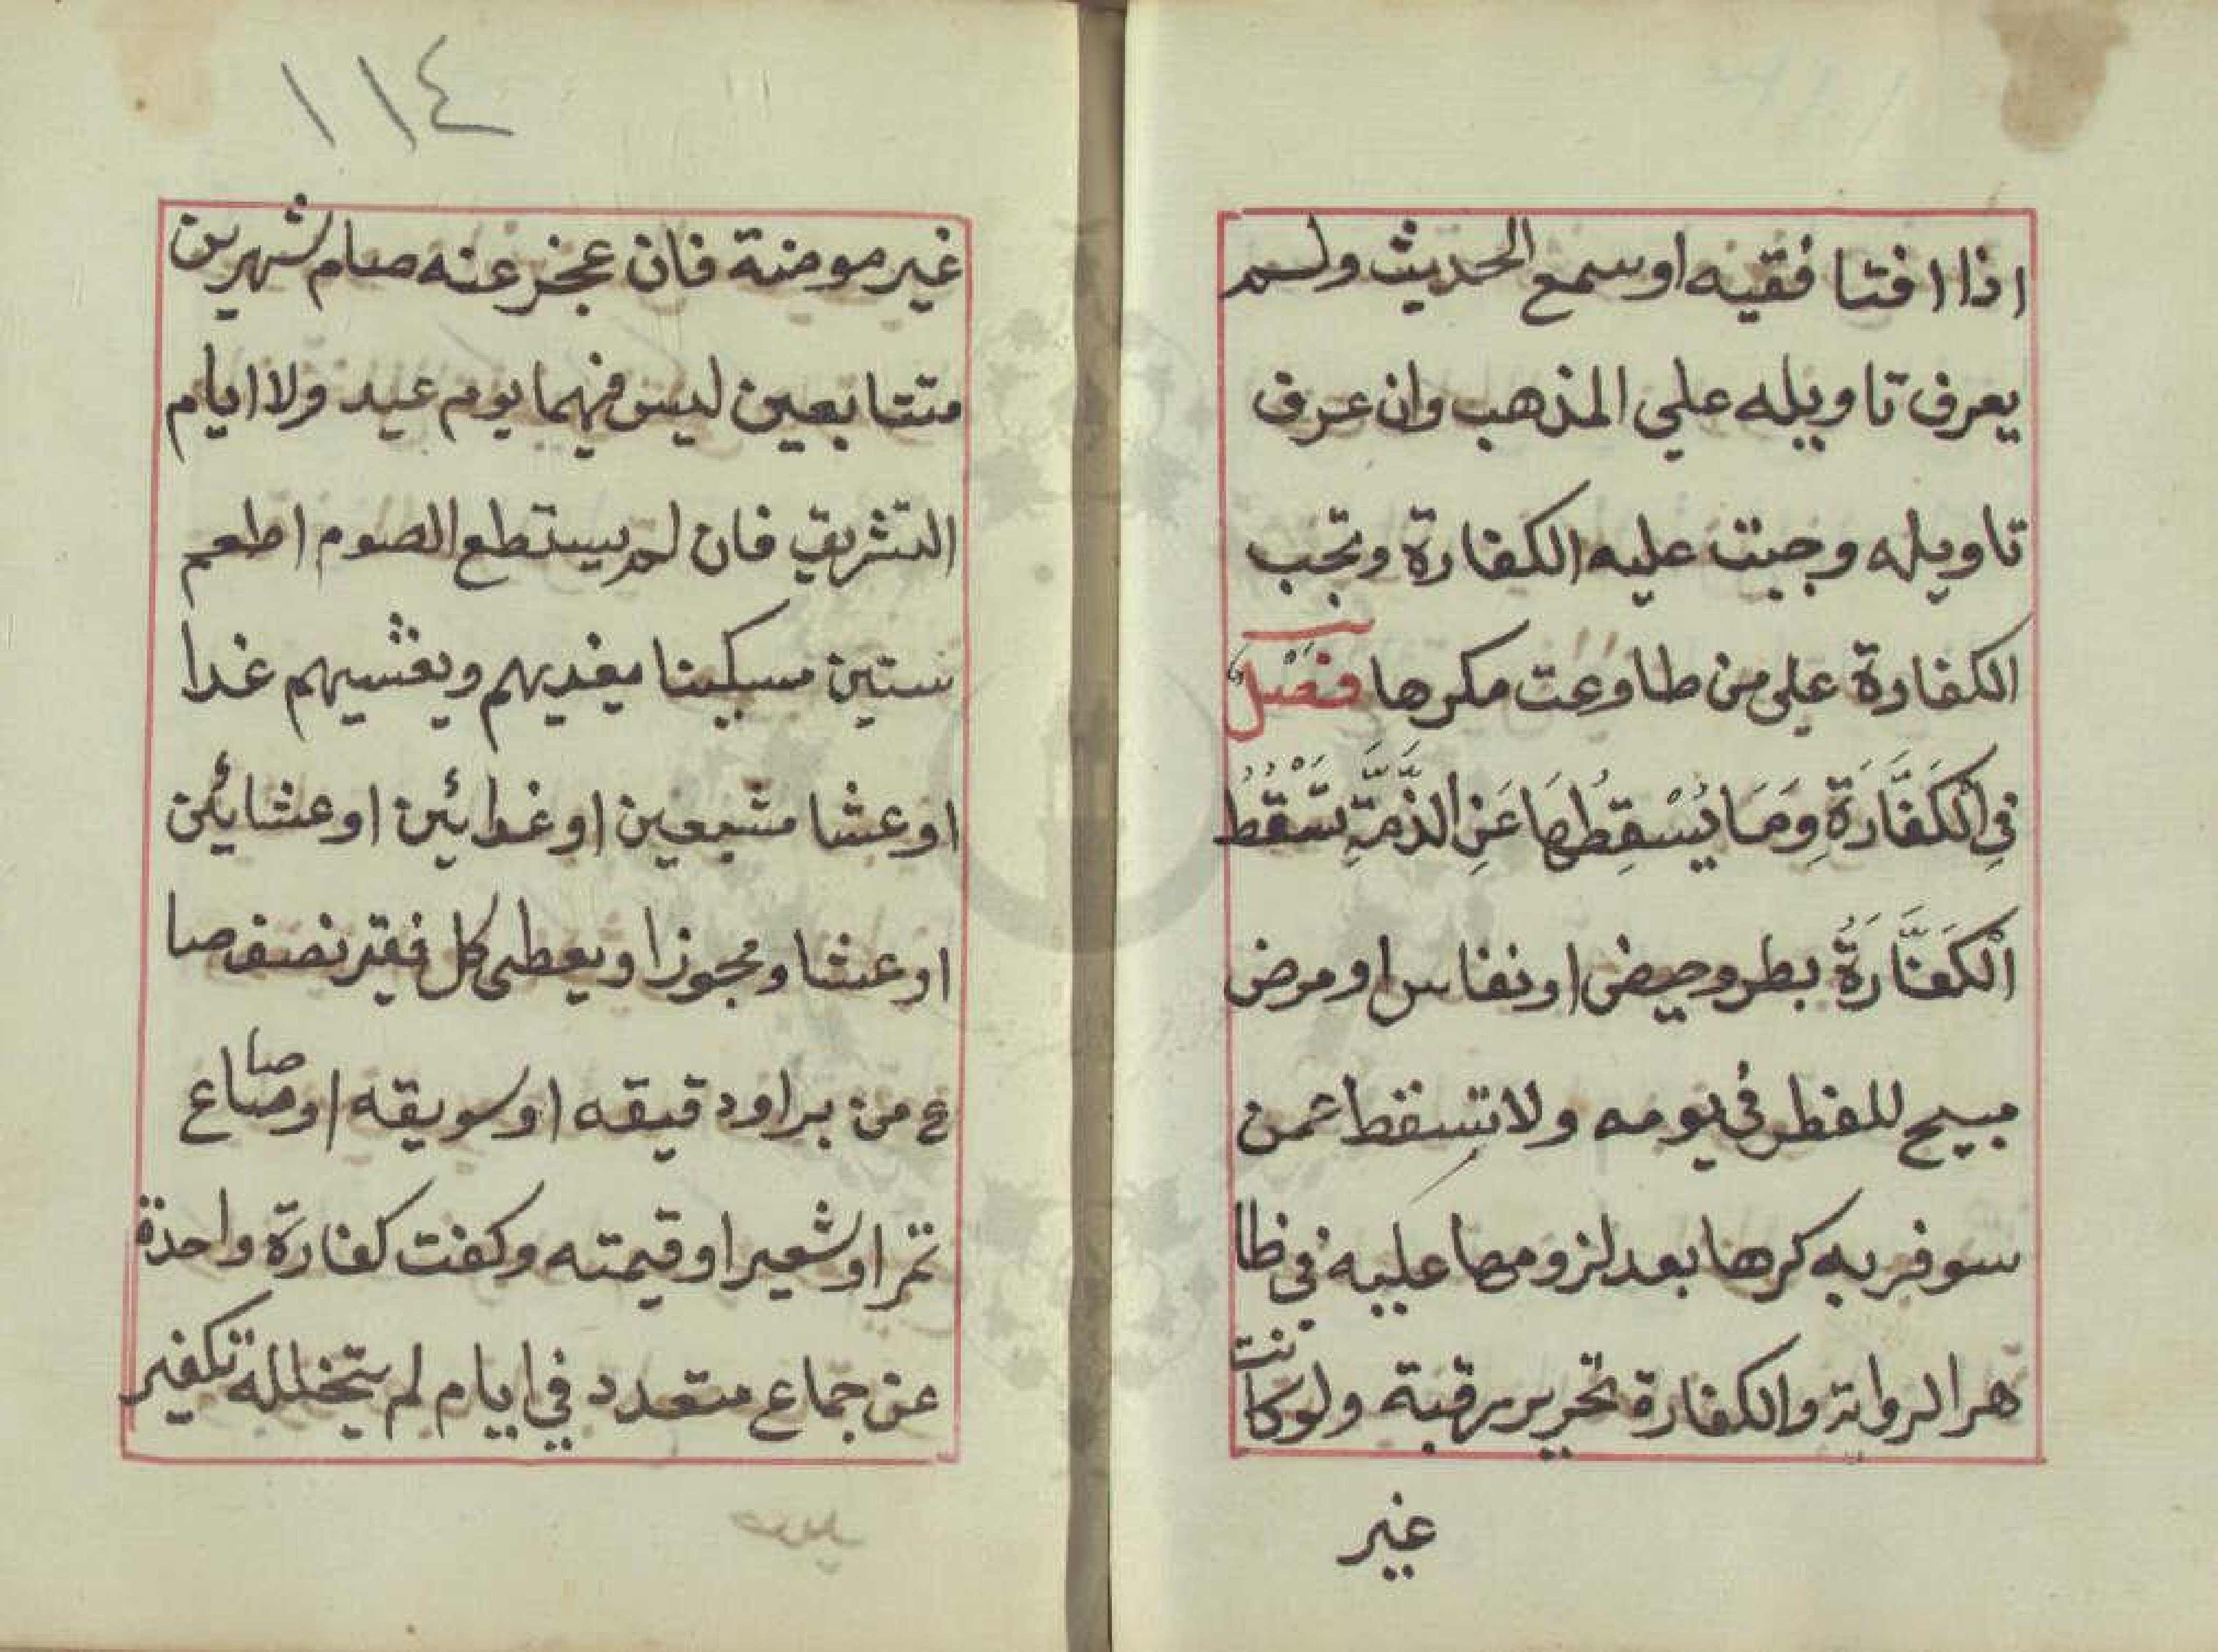 اذا افتا فقيه او سمع الحديث ولم
يعرف تاويله علي المذهب وان عرف
تاويله وجبت عليه الكفارة وتجب
الكفارة على من طاوعت مكرها فصل
فِي الْكَفَّارَةِ وَمَا يُسْقِطُهَا عَنِ الذِّمَّةِ تَسْقُطُ
الْكَفَّارَةُ بطر وحيض او نفاس او مرض
مبيح للفطر في يومه ولا تسقط عمن
سوفر به كرها بعد لزومها عليه في ظا
هر الرواية والكفارة تحرير رقبة ولو كانت
غير
١١٤
غير مومنة فان عجز عنه صام شهرين
متتابعين ليس فيهما يوم عيد ولا ايام
التشريق فان لم يستطع الصوم اطعم
ستين مسكينا يغديهم ويعشيهم غدا
او عشا مشبعين او غدائين او عشائين
او عشا ومجوزا ويعطى كل فقير نصف صا
ع من بر او دقيقه او سويقه او صاع
تمر او شعير او قيمته وكفت كفارة واحدة
عن جماع متعدد في ايام لم يتخلله تكفير